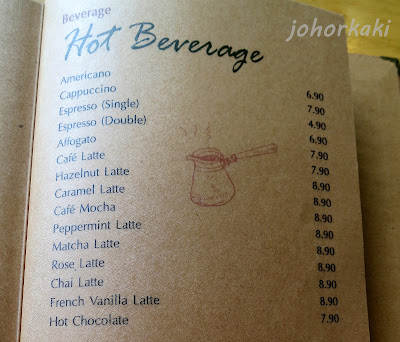 Beverage
johorkaki
Hot Beverage
Americano 6.90
Cappuccino 7.90
Espresso (Single) 4.90
Espresso (Double) 6.90
Affogato 7.90
Café Latte 7.90
Hazelnut Latte 8.90
Caramel Latte 8.90
Café Mocha 8.90
Peppermint Latte 8.90
Matcha Latte 8.90
Rose Latte 8.90
Chai Latte 8.90
French Vanilla Latte 8.90
Hot Chocolate 7.90